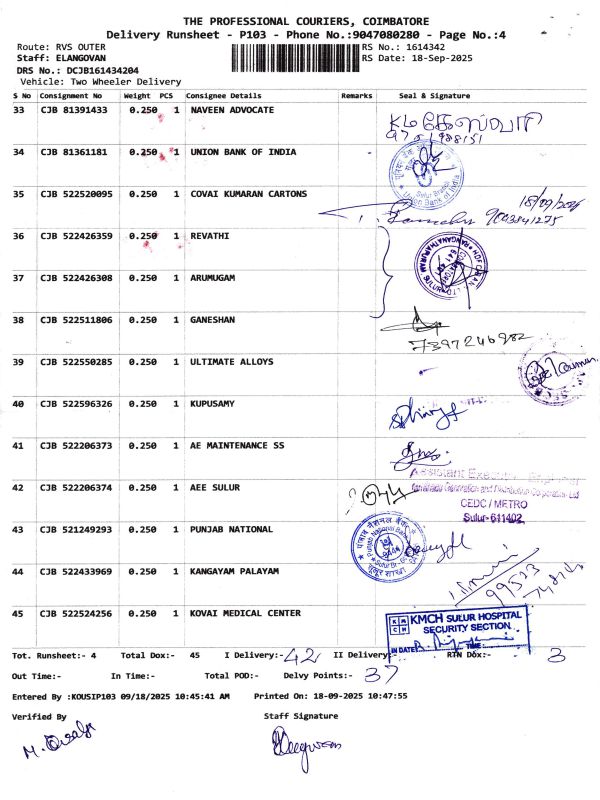 THE PROFESSIONAL COURIERS, COIMBATORE
Delivery Runsheet - P103 - Phone No.:9047080280 - Page No.:4
Route: RVS OUTER RS No.: 1614342
Staff: ELANGOVAN RS Date: 18-Sep-2025
DRS No.: DCJB161434204
Vehicle: Two Wheeler Delivery
S No Consignment No Weight PCS Consignee Details Remarks Seal & Signature
33 CJB 81391433 0.250 1 NAVEEN ADVOCATE
34 CJB 81361181 0.250 1 UNION BANK OF INDIA
Sulur Branch
Union Bank of India
35 CJB 522520095 COVAI KUMARAN CARTONS
18/09/2025
9003841275
36 CJB 522426359 0.250 1 REVATHI
37 CJB 522426308 0.250 1 ARUMUGAM
38 CJB 522511806 0.250 1 GANESHAN
7397246982
39 CJB 522550285 0.250 1 ULTIMATE ALLOYS
40 CJB 522596326 0.250 1 KUPUSAMY
41 CJB 522206373 0.250 1 AE MAINTENANCE SS
Assistant Executive Engineer
42 CJB 522206374 0.250 1 AEE SULUR
CEDC / METRO
Sulur-611402
43 CJB 521249293 0.250 1 PUNJAB NATIONAL
पंजाब नैशनल बैंक
Punjab National Bank
44 CJB 522433969 0.250 1 KANGAYAM PALAYAM
45 CJB 522524256 0.250 1 KOVAI MEDICAL CENTER
KMCH SULUR HOSPITAL
SECURITY SECTION
IN DATE: TIME:
Tot. Runsheet:- 4 Total Dox:- 45 I Delivery:- 42 II Delivery: RTN Dox:- 3
Out Time:- In Time:- Total POD:- Delvy Points:- 37
Entered By :KOUSIP103 09/18/2025 10:45:41 AM Printed On: 18-09-2025 10:47:55
Verified By Staff Signature